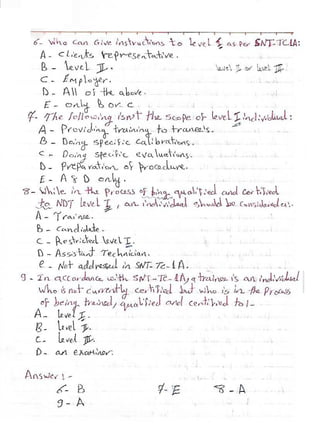 6- Who can Give instructions to level I as per SNT-TC-1A:
A- Clients representative.
B- level II. level II or level III
C- Employer.
D- All of the above.
E- only B or C.
7- The following isn't the scope of level I individual:
A- Providing training to trancels.
B- Doing specific calibrations.
C- Doing specific evaluations.
D- Preparation of procedure.
E- A & D only.
8- While in the Process of being qualified and Certified
to NDT level I, an individual should be Considered as:
A- Trainee.
B- Candidate.
C- Restricted level I.
D- Assistant Technician.
E- Not addressed in SNT-TC-1A.
9- In accordance with SNT-TC-1A, a trainee is an individual
who is not currently certified but who is in the Process
of being trained, qualified and certified to:-
A- level I.
B- level II.
C- level III.
D- an examiner.
Answer:-
6- B 7- E 8- A
9- A